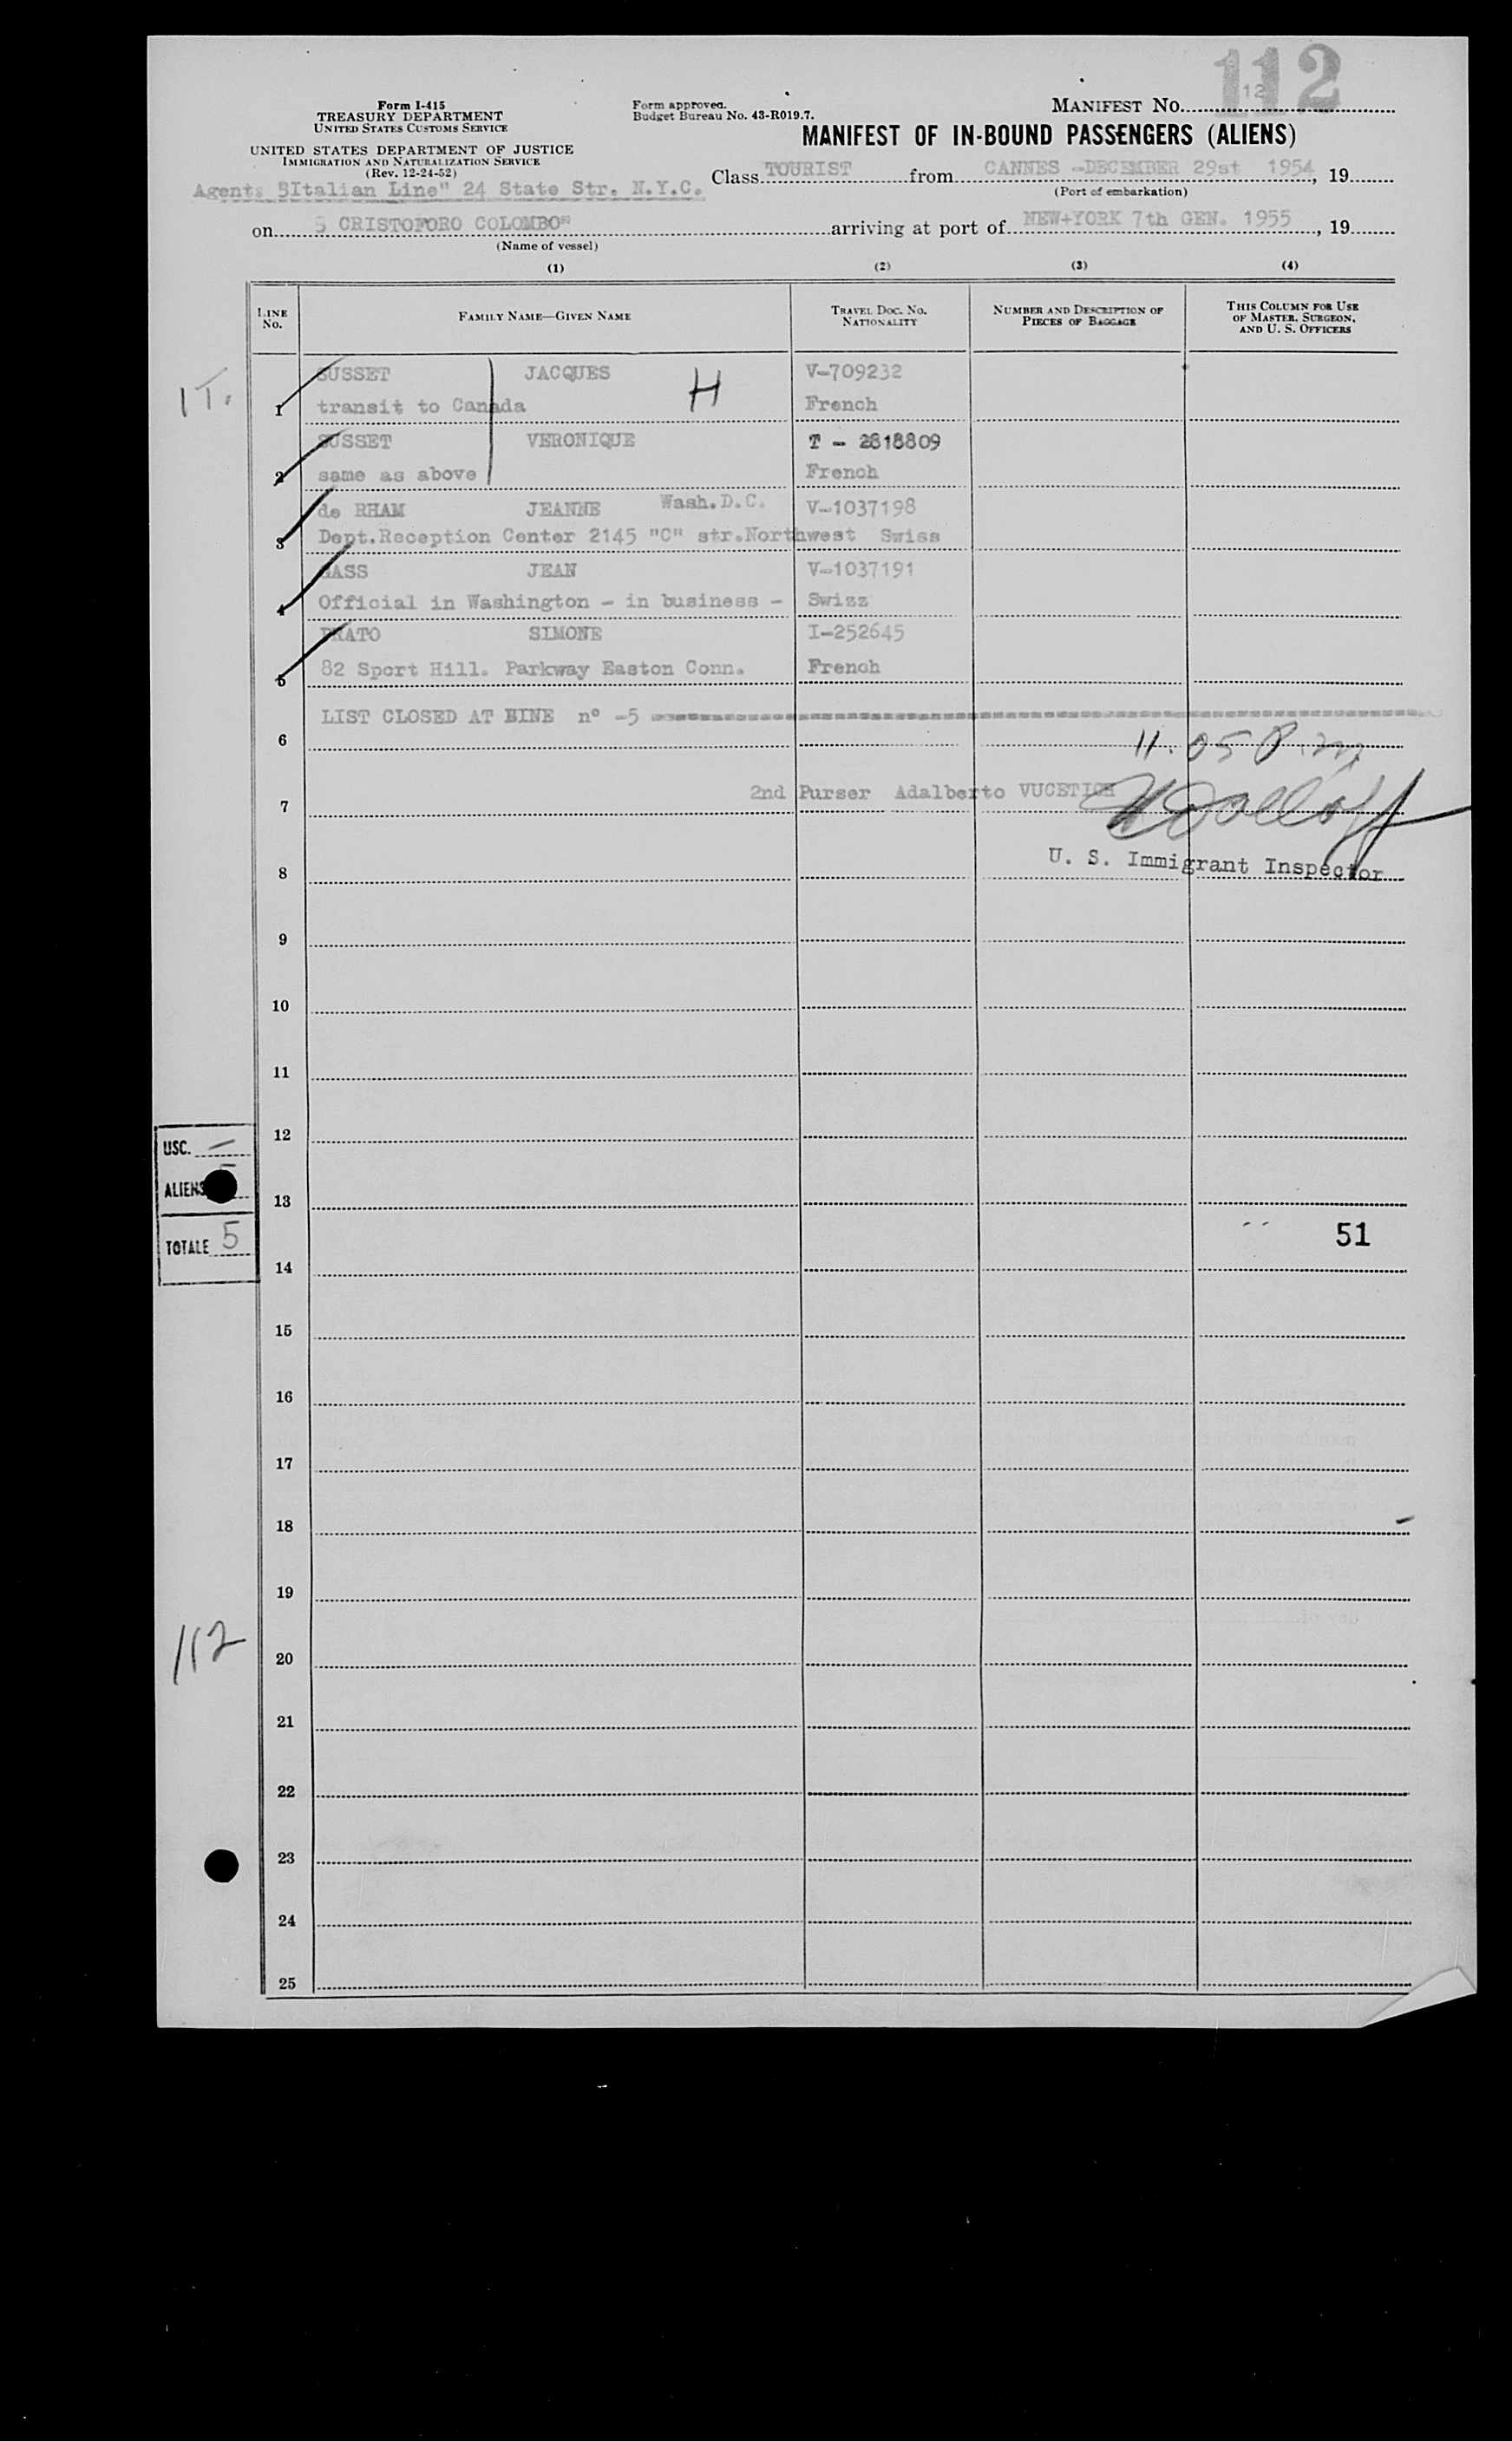 112
Form I-415
TREASURY DEPARTMENT
UNITED STATES CUSTOMS SERVICE
UNITED STATES DEPARTMENT OF JUSTICE
IMMIGRATION AND NATURALIZATION SERVICE
(Rev. 12-24-52)
Form approved.
Budget Bureau No. 43-R019.7.
MANIFEST NO. 12
MANIFEST OF IN-BOUND PASSENGERS (ALIENS)
Agent: 5Italian Line" 24 State Str. N.Y.C.
Class TOURIST from CANNES -DECEMBER 29st 1954, 19
(Port of embarkation)
on 5 CRISTOFORO COLOMBO" arriving at port of NEW+YORK 7th GEN. 1955, 19
(Name of vessel)
(1) (2) (3) (4)
LINE No.
FAMILY NAME—GIVEN NAME
TRAVEL DOC. NO. NATIONALITY
NUMBER AND DESCRIPTION OF PIECES OF BAGGAGE
THIS COLUMN FOR USE OF MASTER, SURGEON, AND U. S. OFFICERS
1T.
SUSSET JACQUES H V-709232
1 transit to Canada French
SUSSET VERONIQUE T - 2818809
2 same as above French
de RHAM JEANNE Wash.D.C. V-1037198
3 Dept.Reception Center 2145 "C" str.Northwest Swiss
GASS JEAN V-1037191
4 Official in Washington - in business - Swizz
PRATO SIMONE I-252645
5 82 Sport Hill. Parkway Easton Conn. French
LIST CLOSED AT LINE n° -5
6 11.05 P.m.
7 2nd Purser Adalberto VUCETICH
8 U. S. Immigrant Inspector
9
10
11
12
USC. —
ALIENS
13
TOTALE 5
51
14
15
16
17
18
19
112
20
21
22
23
24
25